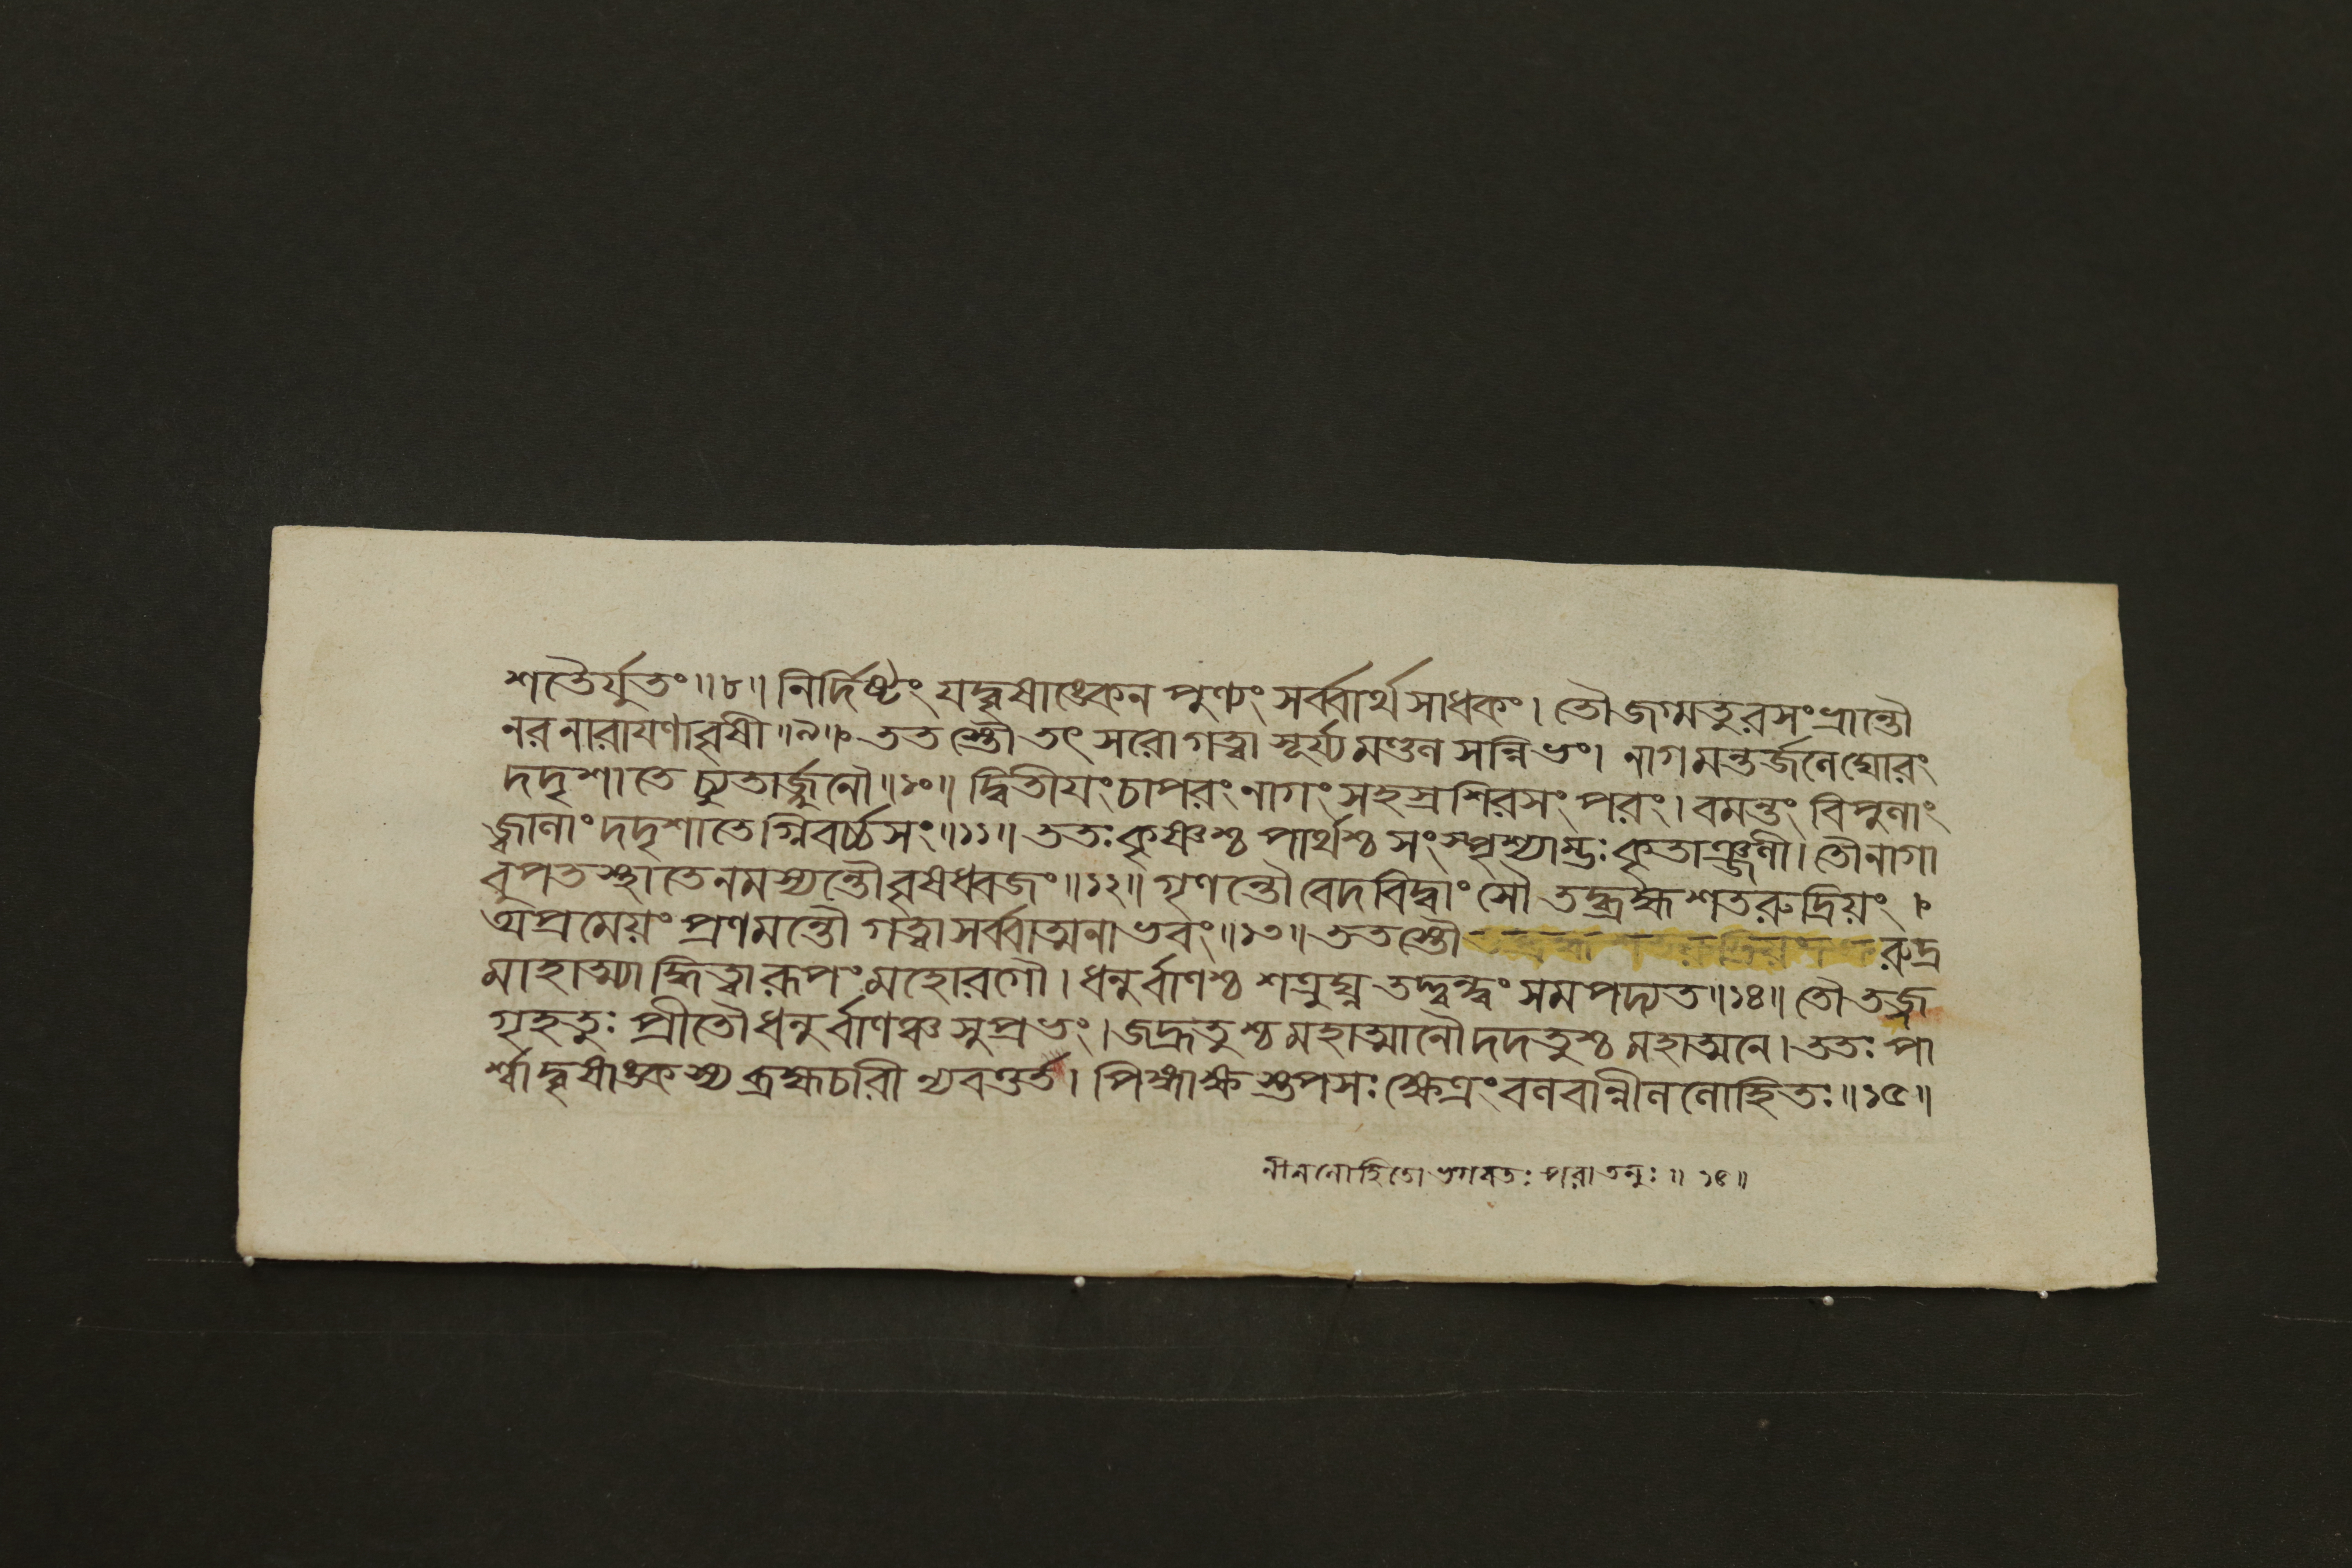 শতৈর্যুতং॥৮॥ নির্দিষ্টং যদ্বৃষাঙ্কেন পুণ্যং সর্ব্বার্থসাধকং। তৌ জগ্মতুরসংভ্রান্তৌ
নরনারাযণাবৃষী॥৯॥ ততস্তৌ তৎ সরো গত্বা সূর্য্যমণ্ডলসন্নিভং। নাগমন্তর্জলেঘোরং
দদৃশাতে চ্যুতার্জ্জুনৌ॥১০॥ দ্বিতীযং চাপরং নাগং সহস্রশিরসং পরং। বমন্তং বিপুলাং
জ্বালাং দদৃশাতেগ্নিবর্চ্চসং॥১১॥ ততঃ কৃষ্ণশ্চ পার্থশ্চ সংস্পৃশ্যাম্ভঃ কৃতাঞ্জলী। তৌনাগা
বুপতস্থাতে নমস্যন্তৌ বৃষধ্বজং॥১২॥ গৃণন্তৌ বেদবিদ্বাংসৌ তদ্ব্রহ্ম শতরুদ্রিয়ং।
অপ্রমেয়ং প্রণমন্তৌ গত্বা সর্ব্বাত্মনা ভবং॥১৩॥ ততস্তৌ রুদ্র
মাহাত্ম্যাদ্ধিত্বা রূপং মহোরগৌ। ধনুর্বাণশ্চ শত্রুঘ্ন তদ্দ্বন্দ্বং সমপদ্যত॥১৪॥ তৌ তজ্জ
গৃহতুঃ প্রীতৌ ধনুর্বাণঞ্চ সুপ্রভং। জহ্রতুশ্চ মহাত্মানৌ দদতুশ্চ মহাত্মনে। ততঃ পা
র্শ্বাদ্বৃষাঙ্কস্য ব্রহ্মচারী ন্যবর্ত্তত। পিঙ্গাক্ষস্তপসঃ ক্ষেত্রং বলবান্নীললোহিতঃ॥১৫॥
নীললোহিতো ভগবতঃ পরা তনুঃ॥ ১৫॥